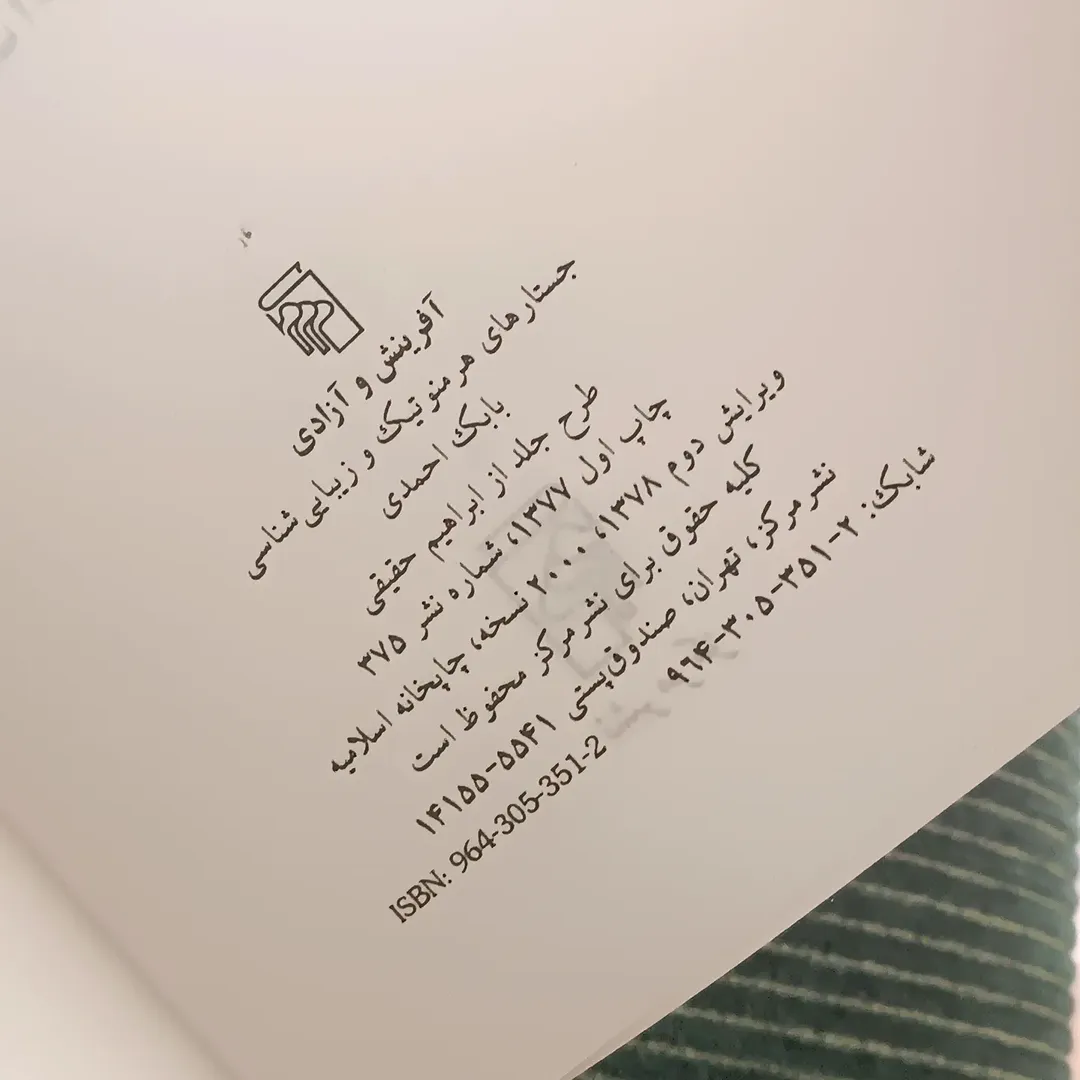 آفرینش و آزادی
جستارهای هرمنوتیک و زیبایی‌شناسی
بابک احمدی
طرح جلد از ابراهیم حقیقی
چاپ اول ۱۳۷۷، شماره نشر ۳۷۵
ویرایش دوم ۱۳۷۸، ۲۰۰۰ نسخه، چاپخانه اسلامیه
کلیه حقوق برای نشرمرکز محفوظ است
نشرمرکز، تهران، صندوق‌پستی ۵۵۴۱-۱۴۱۵۵
شابک: ۲-۳۵۱-۳۰۵-۹۶۴
ISBN: 964-305-351-2